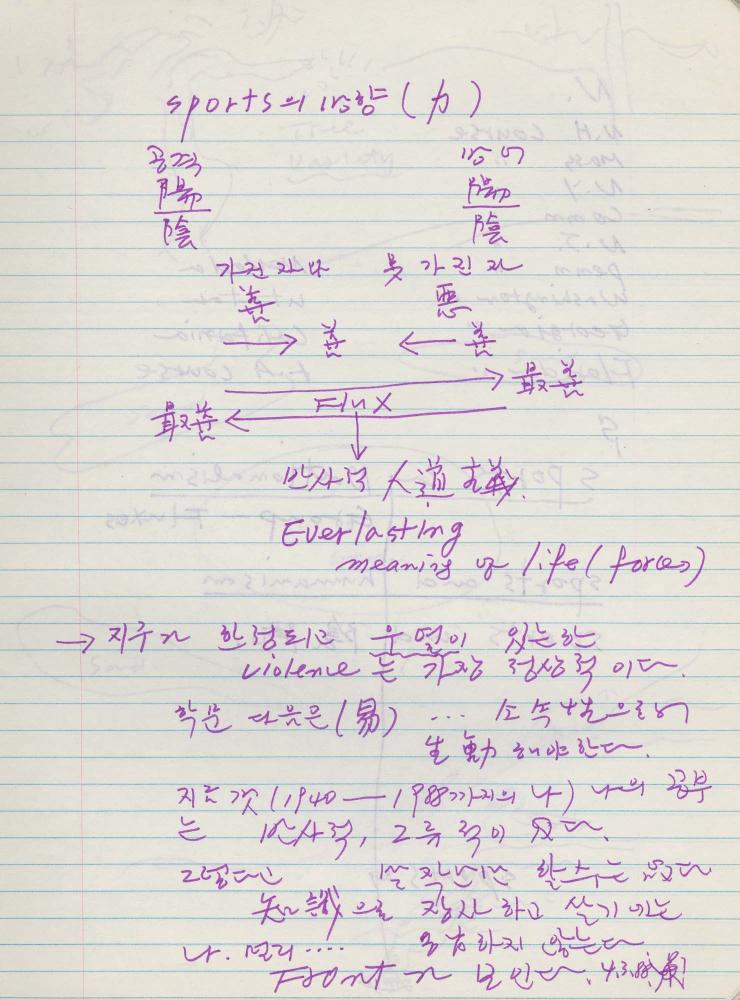 sports의 방향 (力)
공격 방어
陽 陽
陰 陰
가진 자와 못 가진 자
善 惡
→ 善 ← 善
→ 最善
最善 ← Flux
↓
반사적 人道主義.
Everlasting
meaning of life (forces)
→ 지구가 한정되고 우열이 있는한
violence는 가장 정상적이다.
학문 다음은 (易) ... 소속性으로
生動해야한다.
지금껏 (1940 — 1988까지의 나) 나의 공부
는 반사적, 그류적이 였다.
그렇다고 할수는 없다
知識으로 장사하고 살기에는
나. 머리....
Front가 보인다.